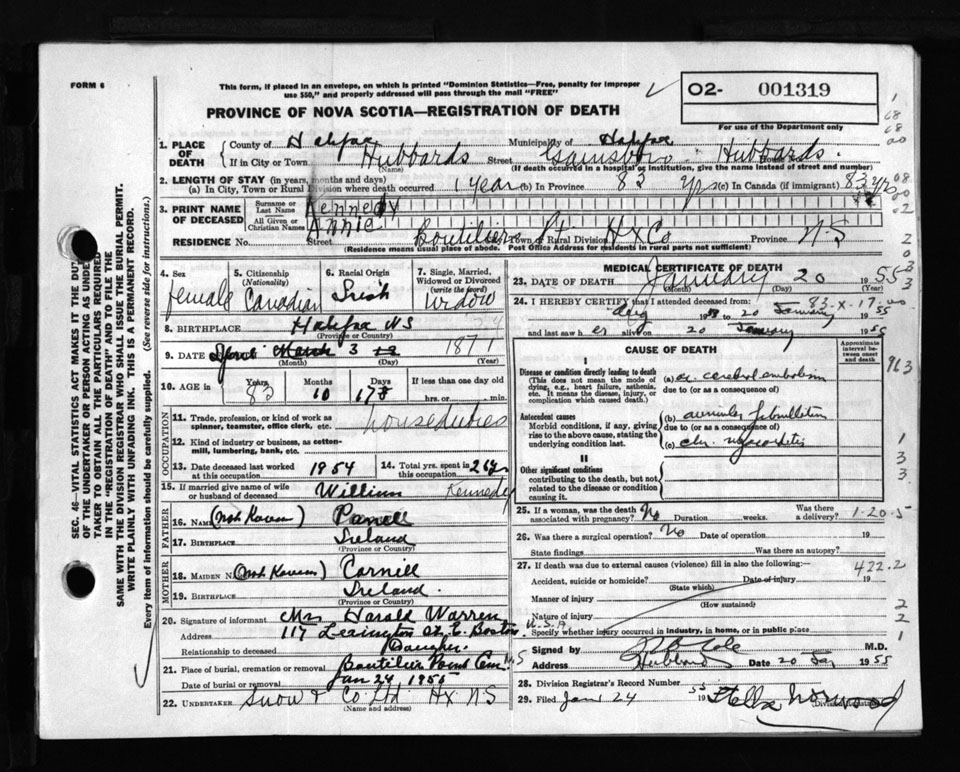 FORM 6
This form, if placed in an envelope, on which is printed "Dominion Statistics—Free, penalty for improper
use $50," and properly addressed will pass through the mail "FREE"
02- 001319
PROVINCE OF NOVA SCOTIA—REGISTRATION OF DEATH
For use of the Department only
1. PLACE OF DEATH
County of Halifax Municipality of Halifax
If in City or Town Hubbards Street Hubbards.
(Name) (If death occurred in a hospital or institution, give the name instead of street and number)
2. LENGTH OF STAY (in years, months and days)
(a) In City, Town or Rural Division where death occurred 1 year (b) In Province 83 yrs (c) In Canada (if immigrant) 83 yrs
3. PRINT NAME OF DECEASED
Surname or Last Name Kennedy
All Given or Christian Names Annie
RESIDENCE No. Street Boutiliers Pt City, Town or Rural Division Hx Co Province N-S
(Residence means usual place of abode. Post Office Address for residents in rural parts not sufficient)
4. Sex female
5. Citizenship (Nationality) Canadian
6. Racial Origin Irish
7. Single, Married, Widowed or Divorced (write the word) widow
8. BIRTHPLACE Halifax NS
(Province or Country)
9. DATE April March 3 12 1871
(Month) (Day) (Year)
10. AGE in Years 83 Months 10 Days 17
If less than one day old
hrs. or min.
OCCUPATION
11. Trade, profession or kind of work as spinner, teamster, office clerk, etc. houseduties
12. Kind of industry or business, as cotton-mill, lumbering, bank, etc.
13. Date deceased last worked at this occupation 1954
14. Total yrs. spent in this occupation 26 yrs
15. If married give name of wife or husband of deceased William Kennedy
FATHER
16. Name (Not Known) Parrell
17. Birthplace Ireland
(Province or Country)
MOTHER
18. Maiden N (Not Known) Carnill
19. Birthplace Ireland.
(Province or Country)
20. Signature of informant Mrs Harald Warren
Address 117 Lexington St. E. Boston U.S.A.
Relationship to deceased Daughter.
21. Place of burial, cremation or removal Boutilier Point Cem NS
Date of burial or removal Jan 24 1955
22. UNDERTAKER Snow & Co Ltd Hx N-S
(Name and address)
MEDICAL CERTIFICATE OF DEATH
23. DATE OF DEATH January 20 1955
(Month) (Day)
24. I HEREBY CERTIFY that I attended deceased from 83-X-17
to 20 January 1955
and last saw h er alive on 20 January 1955
I
CAUSE OF DEATH
Approximate interval between onset and death
Disease or condition directly leading to death
(This does not mean the mode of dying, e.g., heart failure, asthenia, etc. It means the disease, injury, or complication which caused death.)
(a) cerebral embolism
due to (or as a consequence of)
Antecedent causes
Morbid conditions, if any, giving rise to the above cause, stating the underlying condition last.
(b) auricular fibrillation
due to (or as a consequence of)
(c) chr. myocarditis
II
Other significant conditions
contributing to the death, but not related to the disease or condition causing it.
25. If a woman, was the death associated with pregnancy? No Duration weeks. Was there a delivery? 1-20-5
26. Was there a surgical operation? No Date of operation 19
State findings Was there an autopsy?
27. If death was due to external causes (violence) fill in also the following:—
422.2
Accident, suicide or homicide? Date of injury 19
(State which)
Manner of injury
(How sustained)
Nature of injury
Specify whether injury occurred in industry, in home, or in public place
Signed by Cole M.D.
Address Hubbards Date 20 Jan 1955
28. Division Registrar's Record Number
29. Filed Jan 24 1955 Stella Norwood
Division Registrar
SEC. 46—VITAL STATISTICS ACT MAKES IT THE DUTY
OF THE UNDERTAKER OR PERSON ACTING AS UNDER-
TAKER TO OBTAIN ALL THE PARTICULARS REQUIRED
IN THE "REGISTRATION OF DEATH" AND TO FILE THE
SAME WITH THE DIVISION REGISTRAR WHO SHALL ISSUE THE BURIAL PERMIT.
WRITE PLAINLY WITH UNFADING INK. THIS IS A PERMANENT RECORD.
Every item of information should be carefully supplied. (See reverse side for instructions.)